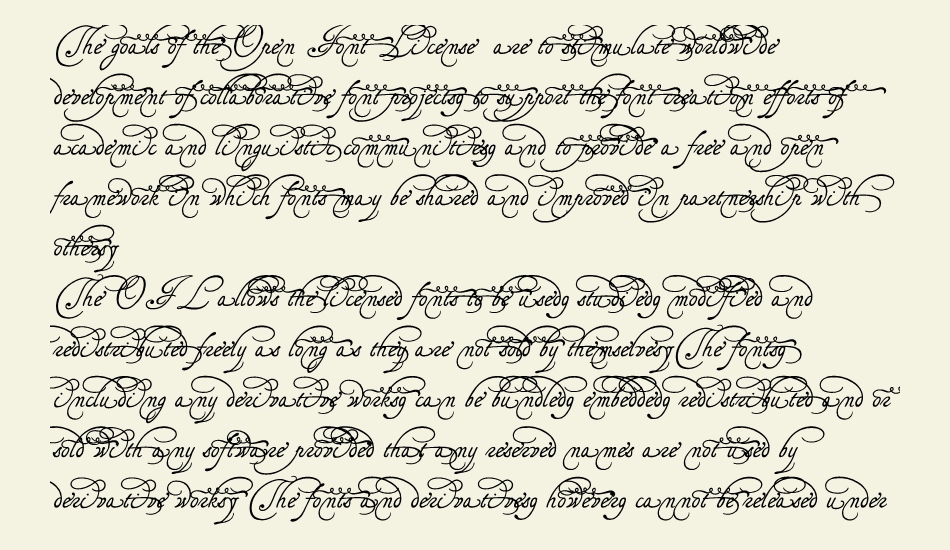 The goals of the Open Font License are to stimulate worldwide
development of collaborative font projects, to support the font creation efforts of
academic and linguistic communities, and to provide a free and open
framework in which fonts may be shared and improved in partnership with
others.
The OFL allows the licensed fonts to be used, studied, modified and
redistributed freely as long as they are not sold by themselves. The fonts,
including any derivative works, can be bundled, embedded, redistributed and or
sold with any software provided that any reserved names are not used by
derivative works. The fonts and derivatives, however, cannot be released under